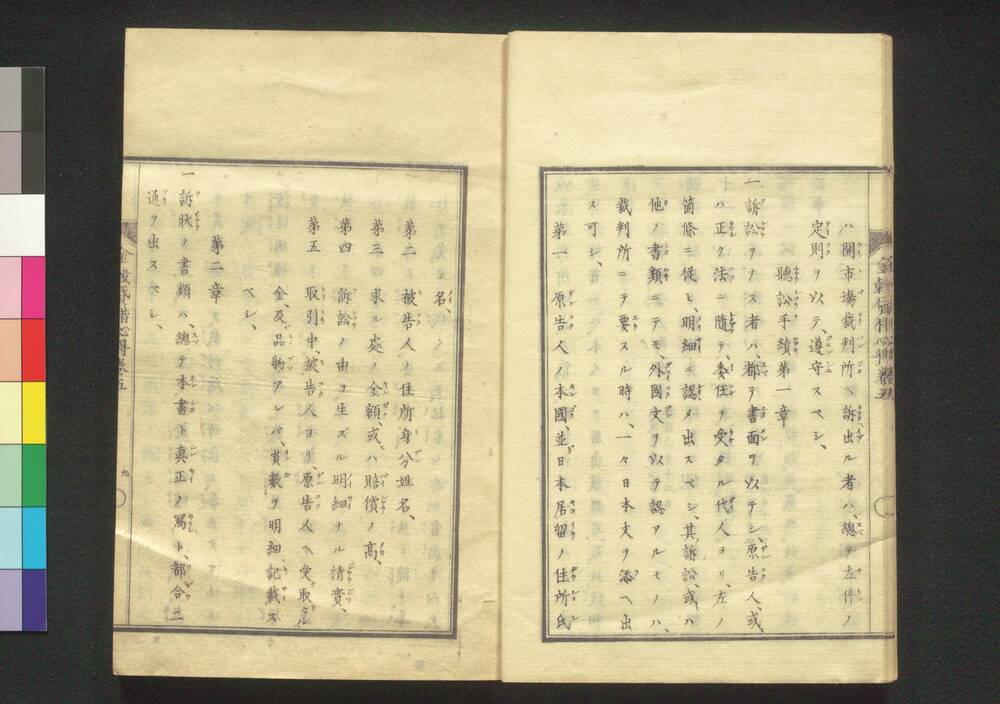 ハ開市場裁判所ヘ訴出ル者ハ、總テ左件ノ
定則ヲ以テ、遵守スベシ、
聽訟手續第一章
一訴訟ヲナス者ハ、都テ書面ヲ以テシ、原告人、或
ハ正ク法ニ隨テ、委任ヲ受タル代人ヨリ、左ノ
箇條ニ從ヒ、明細ニ認メ出スベシ、其訴訟、或ハ
他ノ書類ニテモ、外國文ヲ以テ認アルモノハ、
裁判所ニテ要スル時ハ、一々日本文ヲ添ヘ出
ス可シ、
第一 原告人ノ本國、並日本居留ノ住所氏
名、
第二 被告人ノ住所身分姓名、
第三 求ル處ノ金額、或ハ賠償ノ高、
第四 訴訟ノ由ヲ生ズル明細ナル情實、
第五 取引中、被告人ヨリ、原告人ヘ受取タル
金、及品物アレバ、其數ヲ明細、記載ス
ベシ、
第二章
一訴状ノ書類ハ、總テ本書ト真正ノ寫ト、都合二
通ヲ出スベシ、
九